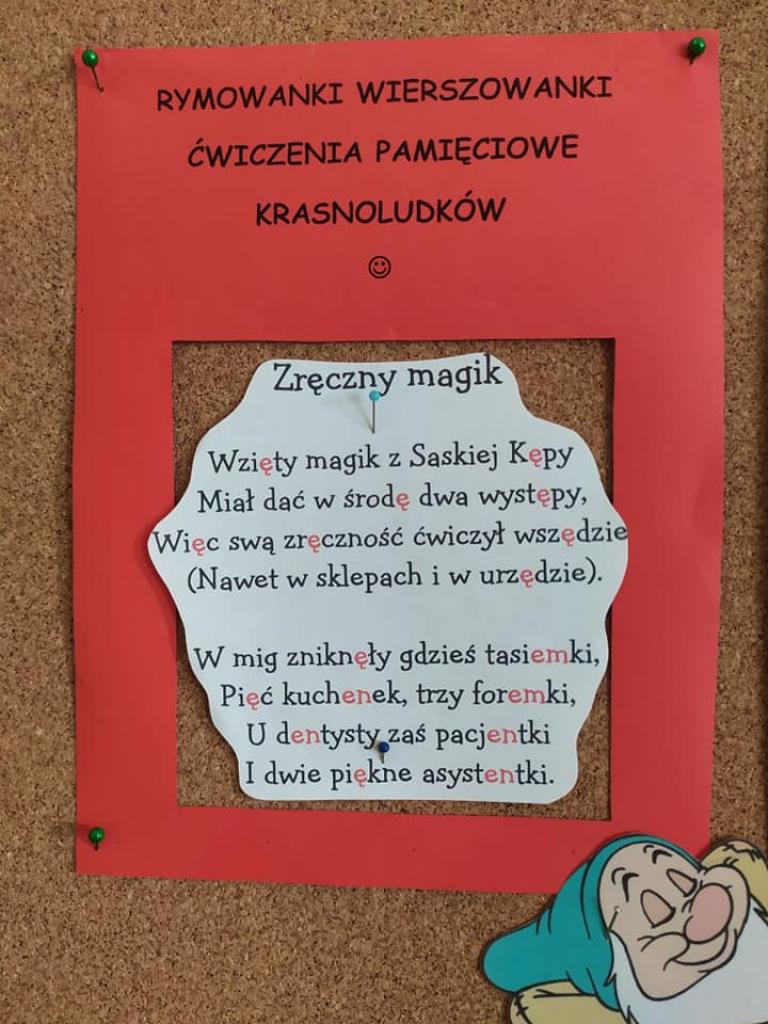 RYMOWANKI WIERSZOWANKI
ĆWICZENIA PAMIĘCIOWE
KRASNOLUDKÓW
☺
Zręczny magik
Wzięty magik z Saskiej Kępy
Miał dać w środę dwa występy,
Więc swą zręczność ćwiczył wszędzie
(Nawet w sklepach i w urzędzie).
W mig zniknęły gdzieś tasiemki,
Pięć kuchenek, trzy foremki,
U dentysty zaś pacjentki
I dwie piękne asystentki.